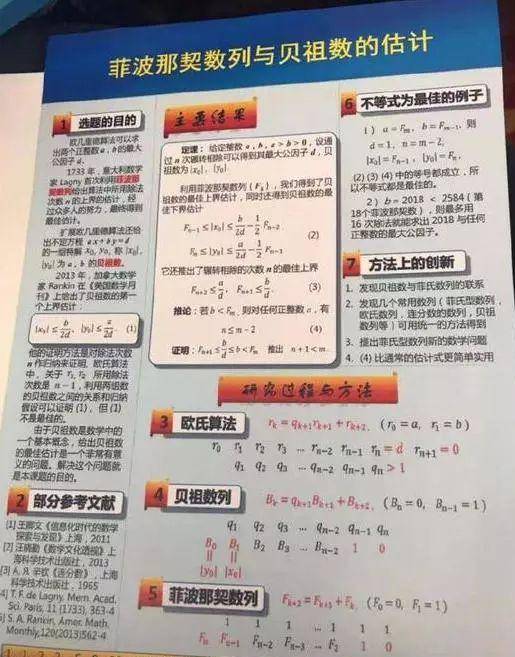 菲波那契数列与贝祖数的估计
1 选题的目的
欧几里德算法可以求
出两个正整数 a，b 的最大
公因子 d.
1733 年，意大利数学
家 Lagny 首次利用菲波那
契数列给出算法中所用除法
次数 n 的上界的估计，经
过众多人的努力，最终得到
最佳估计。
扩展欧几里德算法还给
出不定方程 ax+by=d
的一组特解 x₀, y₀, 称 |x₀|,
|y₀| 为 a，b 的贝祖数。
2013 年，加拿大数学
家 Rankin 在《美国数学月
刊》上给出了贝祖数的第一
个上界估计：
|x₀| ≤ b/2d, |y₀| ≤ a/2d. (1)
他的证明方法是对除法次数
n 作归纳来证明. 欧几里德算法
中，关于 r₁, r₂ 所用除法
次数是 n − 1，利用两组数
的贝祖数之间的关系和归纳
假设可以证明 (1)，但 (1)
不是最佳的。
由于贝祖数是数学中的
一个基本概念，给出贝祖数
的最佳估计是一个非常有意
义的问题。解决这个问题就
是本课题的目的。
2 部分参考文献
《信息化时代的数学
探索与发现》上海，2011
《数学文化透视》上
海科学技术出版社，2013
[3] A. Я. 辛钦《连分数》，上海
科学技术出版社，1965
[4] T. F. de Lagny. Mem. Acad.
Sci. Paris, 11 (1733), 363-4
[5] S. A. Rankin, Amer. Math.
Monthly,120(2013)562-4
主要结果
定理：给定整数 a, b, a > b > 0，设通
过 n 次辗转相除可以得到其最大公因子 d，贝
祖数为 |x₀|, |y₀|.
利用菲波那契数列 {Fₖ}，我们得到了贝
祖数的最佳上界估计，同时还得到贝祖数的最
佳下界估计
Fₙ₋₁ ≤ |x₀| ≤ b/2d − 1/2 Fₙ₋₂
Fₙ ≤ |y₀| ≤ a/2d − 1/2 Fₙ₋₁ (2)
它还推出了辗转相除的次数 n 的最佳上界
Fₙ₊₂ ≤ a/d, Fₙ₊₁ ≤ b/d. (3)
推论：若 b < Fₘ，则对任何正整数 a，有
n ≤ m − 2 (4)
证明：Fₙ₊₁ ≤ b/d ≤ b < Fₘ 推出 n + 1 < m.
6 不等式为最佳的例子
1) a = Fₘ, b = Fₘ₋₁, 则
d = 1, n = m − 2,
|x₀| = Fₙ₋₁, |y₀| = Fₙ,
(2) (3) (4) 中的等号都成立，所
以不等式都是最佳的。
2) b = 2018 < 2584 (第
18个菲波那契数)，则最多用
16 次除法就能求出 2018 与任何
正整数的最大公因子。
7 方法上的创新
1. 发现贝祖数与菲氏数列的联系
2. 发现几个常用数列（菲氏型数列，
欧氏数列，连分数的数列，贝祖
数列等）可用统一的方法得到
3. 提出菲氏型数列新的数学问题
4. (4) 比通常的估计式更简单实用
研究过程与方法
3 欧氏算法 rₖ = qₖ₊₁rₖ₊₁ + rₖ₊₂, (r₀ = a, r₁ = b)
r₀ r₁ r₂ r₃ … rₙ₋₂ rₙ₋₁ rₙ = d rₙ₊₁ = 0
q₁ q₂ q₃ … qₙ₋₂ qₙ₋₁ qₙ > 1
4 贝祖数列 Bₖ = qₖ₊₁Bₖ₊₁ + Bₖ₊₂, (Bₙ = 0, Bₙ₋₁ = 1)
q₁ q₂ q₃ … qₙ₋₂ qₙ₋₁ qₙ
B₀ B₁ B₂ B₃ … Bₙ₋₂ 1 0
|| ||
|y₀| |x₀|
5 菲波那契数列 Fₖ₊₂ = Fₖ₊₁ + Fₖ, (F₀ = 0, F₁ = 1)
1 1 1 … 1 1 1
Fₙ Fₙ₋₁ Fₙ₋₂ Fₙ₋₃ … F₂ 1 0